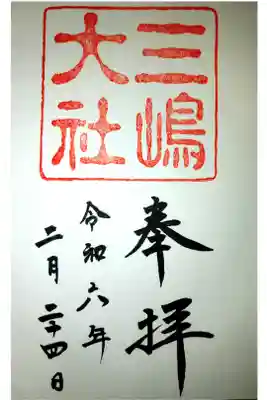 三嶋
大社
奉拝
令和六年
二月二十四日